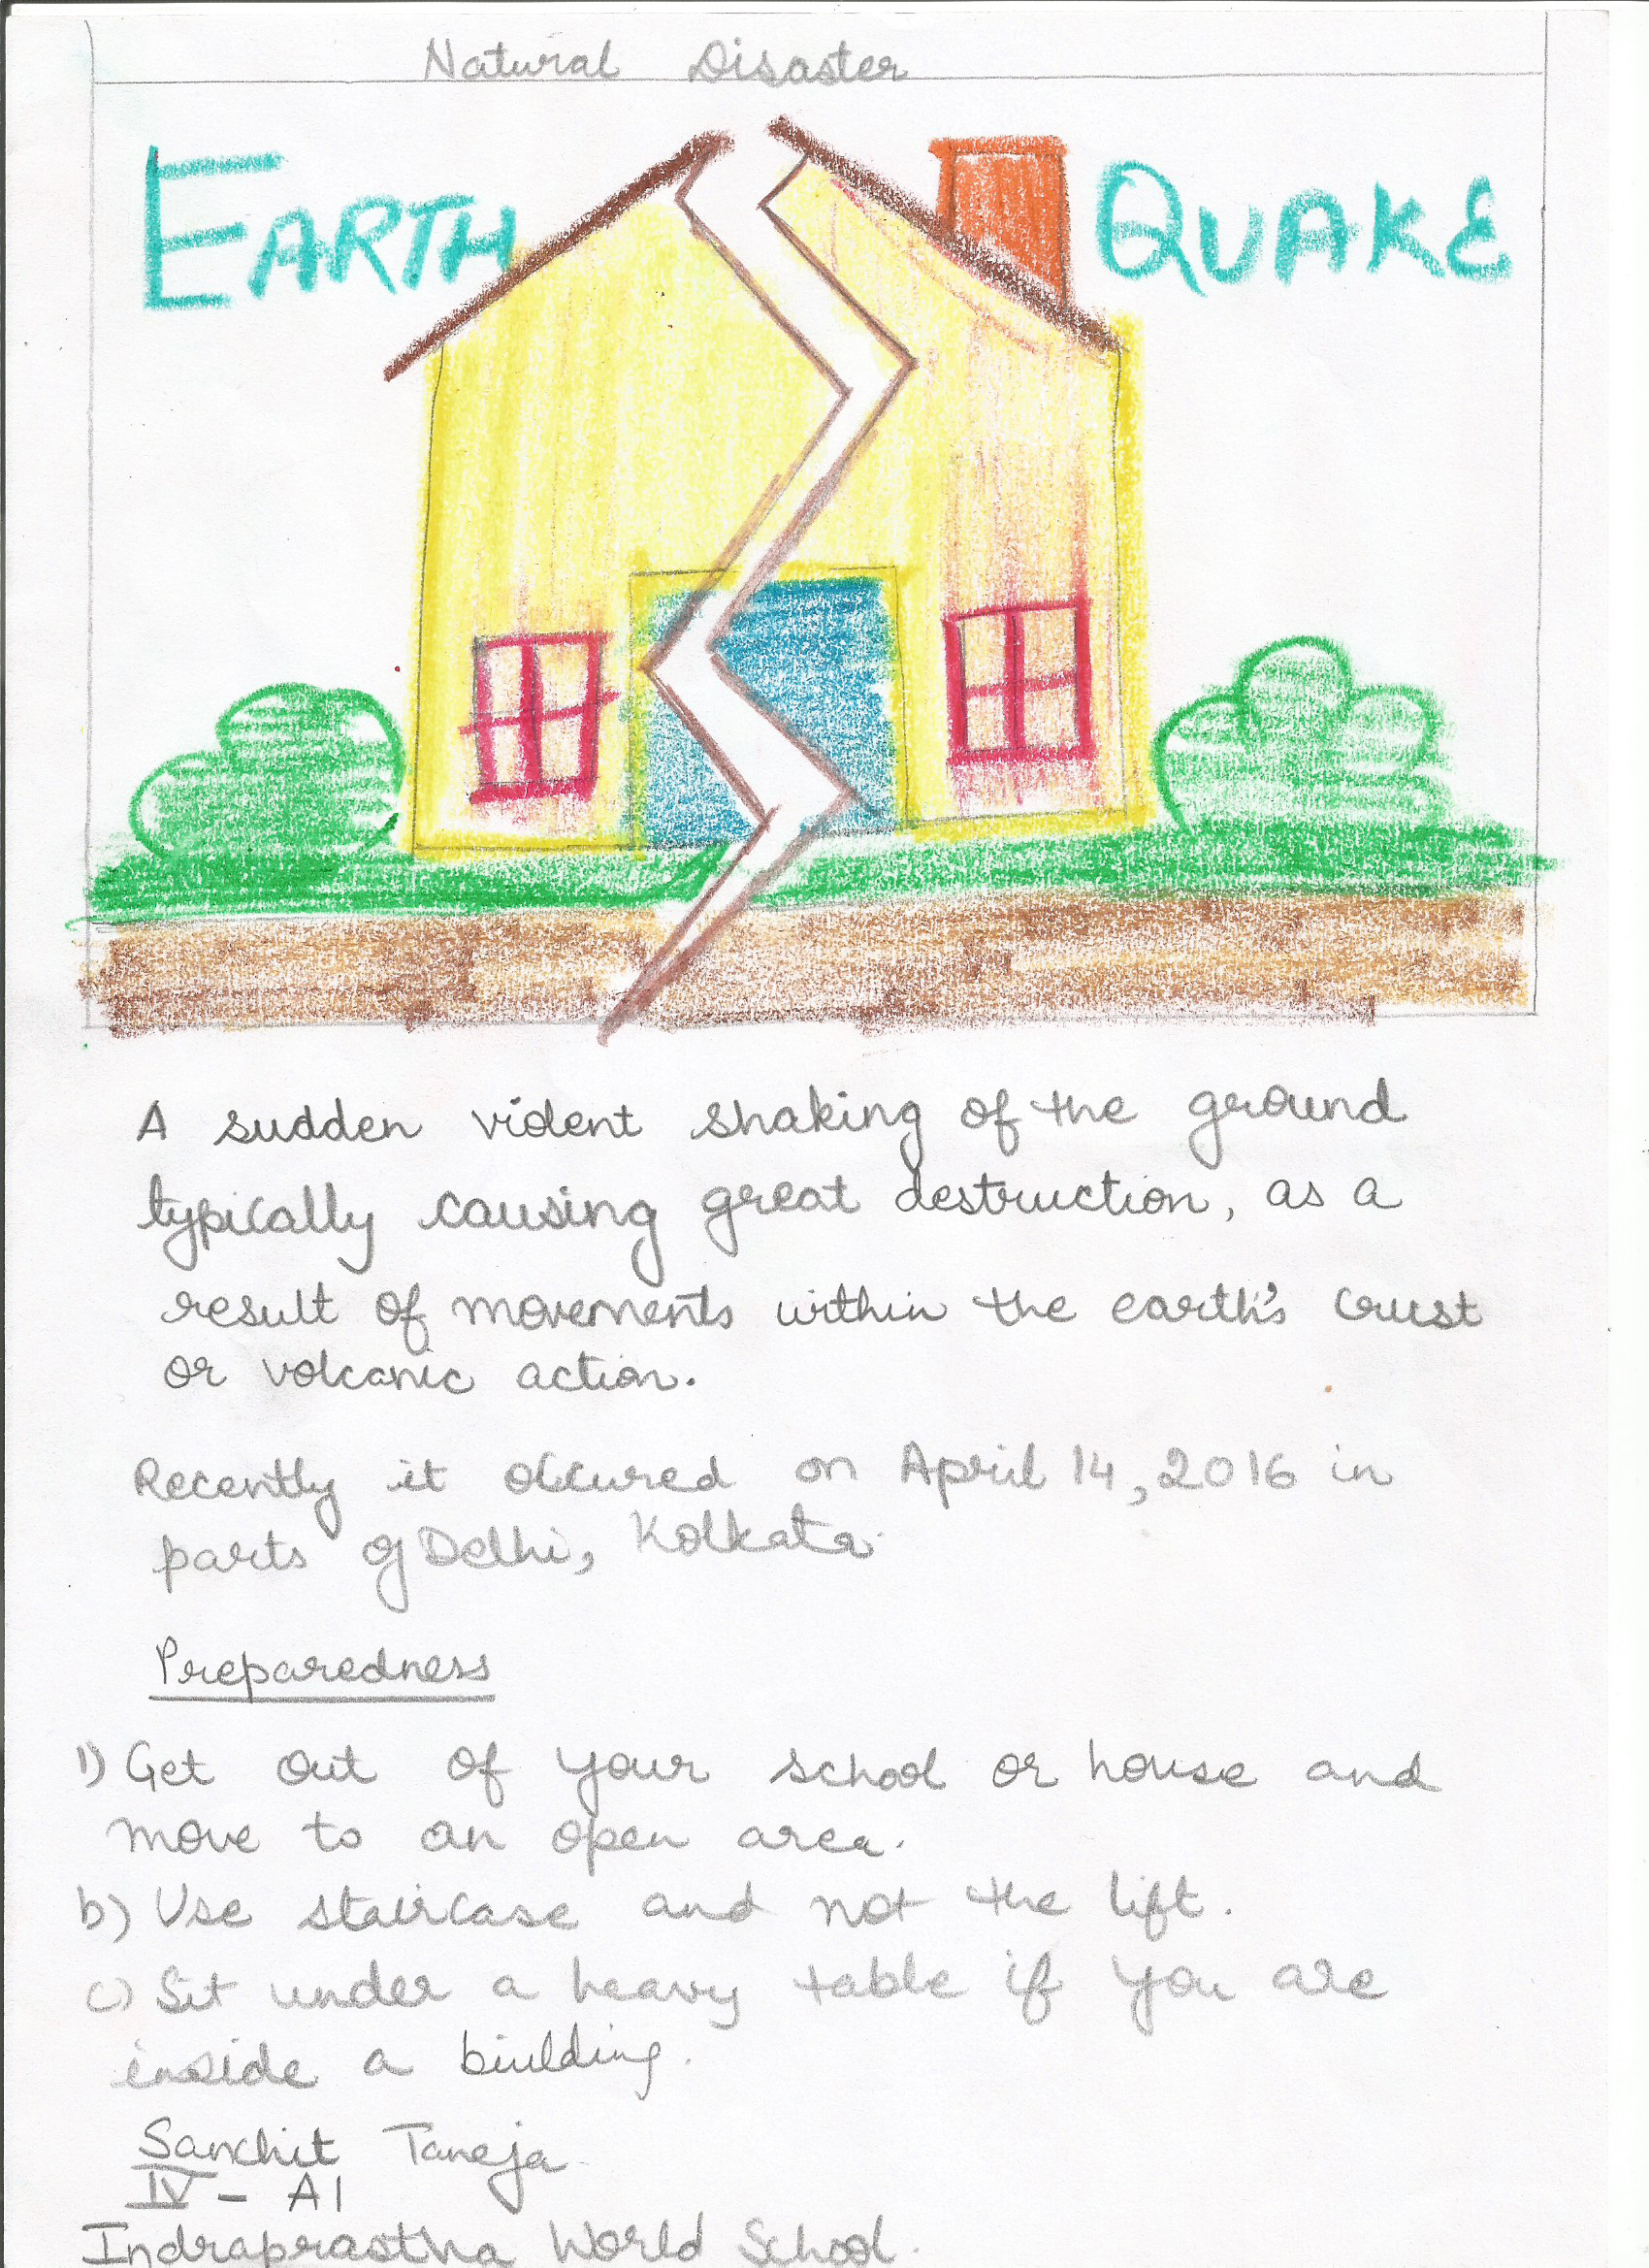 Natural Disaster
EARTH QUAKE
A sudden violent shaking of the ground
typically causing great destruction, as a
result of movements within the earth's crust
or volcanic action.
Recently it occured on April 14, 2016 in
parts of Delhi, Kolkata.
Preparedness
1) Get out of your school or house and
move to an open area.
b) Use staircase and not the lift.
c) Sit under a heavy table if you are
inside a building.
Sanchit Taneja
IV - A1
Indraprastha World School.